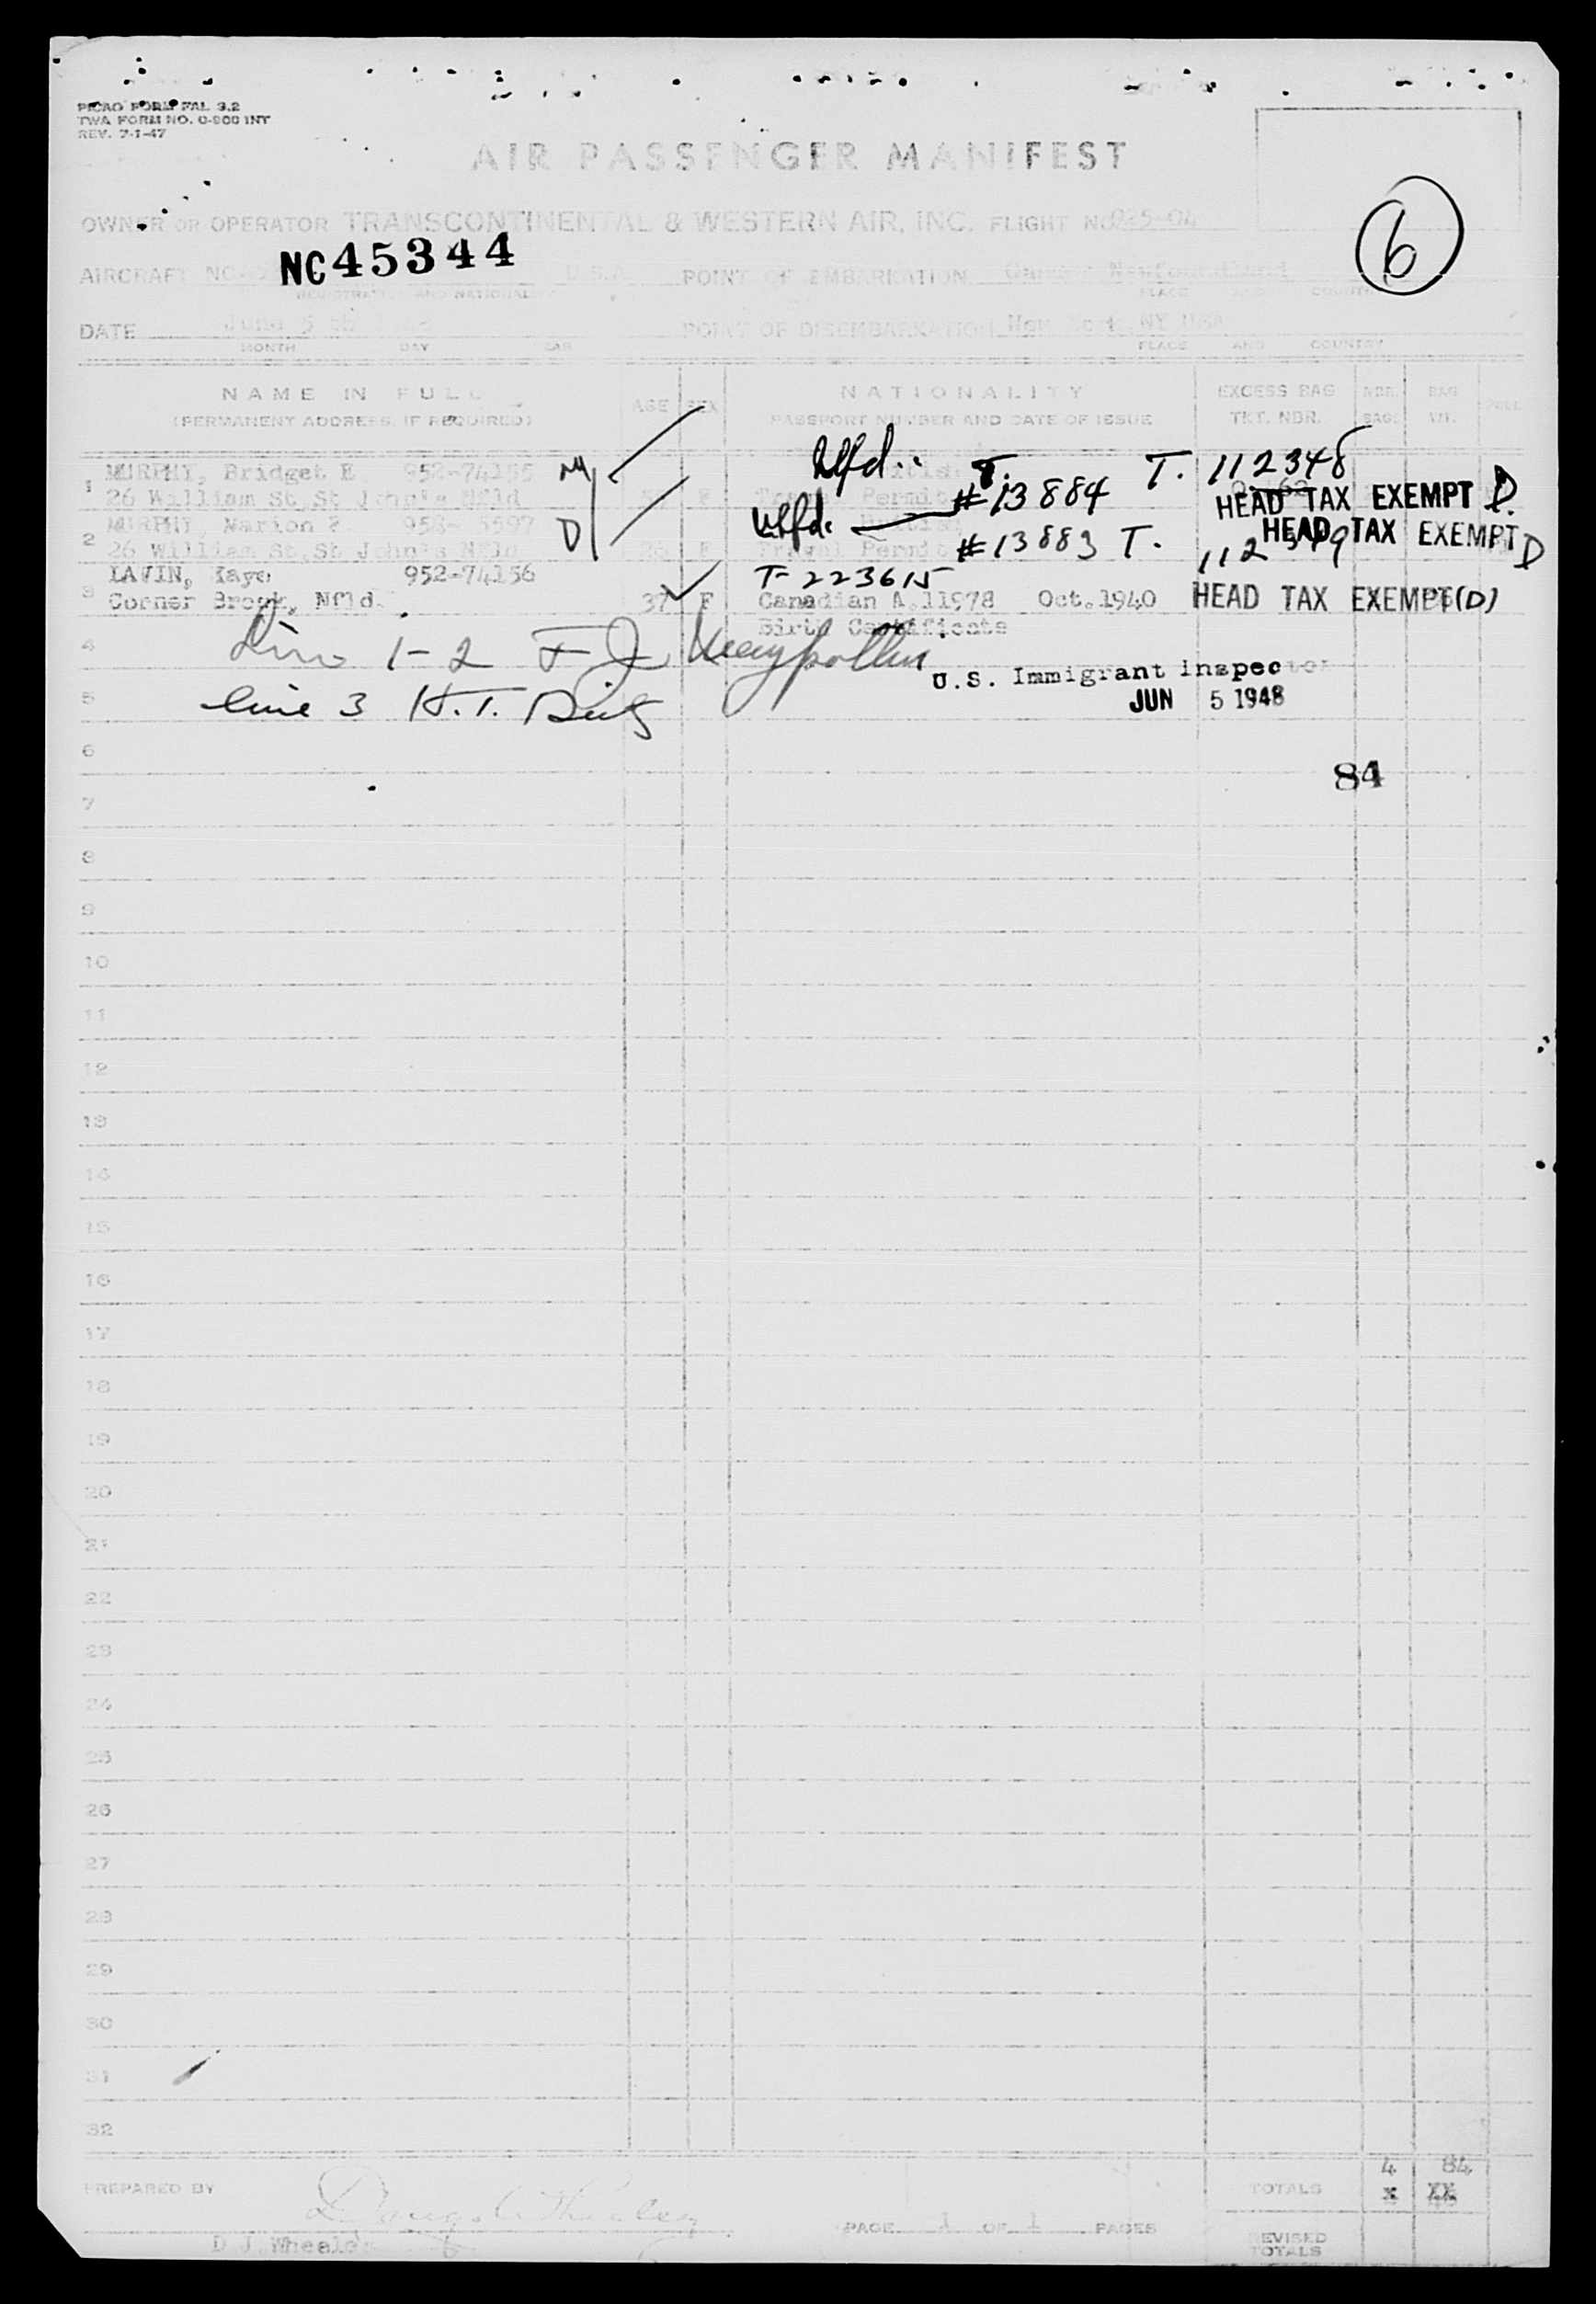 PICAO FORM FAL 3.2
TWA FORM NO. O-800 INT
REV. 7-1-47
AIR PASSENGER MANIFEST
6
OWNER OR OPERATOR TRANSCONTINENTAL & WESTERN AIR, INC. FLIGHT NO 925-04
AIRCRAFT NC NC45344 U.S.A. POINT OF EMBARKATION Gander Newfoundland
REGISTRATION AND NATIONALITY PLACE AND COUNTRY
DATE June 5 th POINT OF DISEMBARKATION New York NY USA
MONTH DAY YEAR PLACE AND COUNTRY
NAME IN FULL AGE SEX NATIONALITY EXCESS BAG NBR. BAG
(PERMANENT ADDRESS, IF REQUIRED) PASSPORT NUMBER AND DATE OF ISSUE TKT. NBR. BAG. WT.
1 MURPHY, Bridget E 952-74155 M Nfld. T. T. 112348
26 William St, St John's Nfld F Travel Permit #13884 HEAD TAX EXEMPT D.
2 MURPHY, Marion D Nfld. HEAD TAX EXEMPT D
26 William St, St John's Nfld 26 F Travel Permit #13883 T. 112349
3 LAVIN, Kaye 952-74156 T-223615
Corner Brook, Nfld. 37 F Canadian A.11978 Oct. 1940 HEAD TAX EXEMPT (D)
Birth Certificate
4 Line 1-2 F J
U.S. Immigrant Inspector
5 line 3 H.T.
JUN 5 1948
6
84
7
8
9
10
11
12
13
14
15
16
17
18
19
20
21
22
23
24
25
26
27
28
29
30
31
32
PREPARED BY TOTALS 4 84
x XX
D J Wheeler PAGE 1 OF 1 PAGES
REVISED
TOTALS